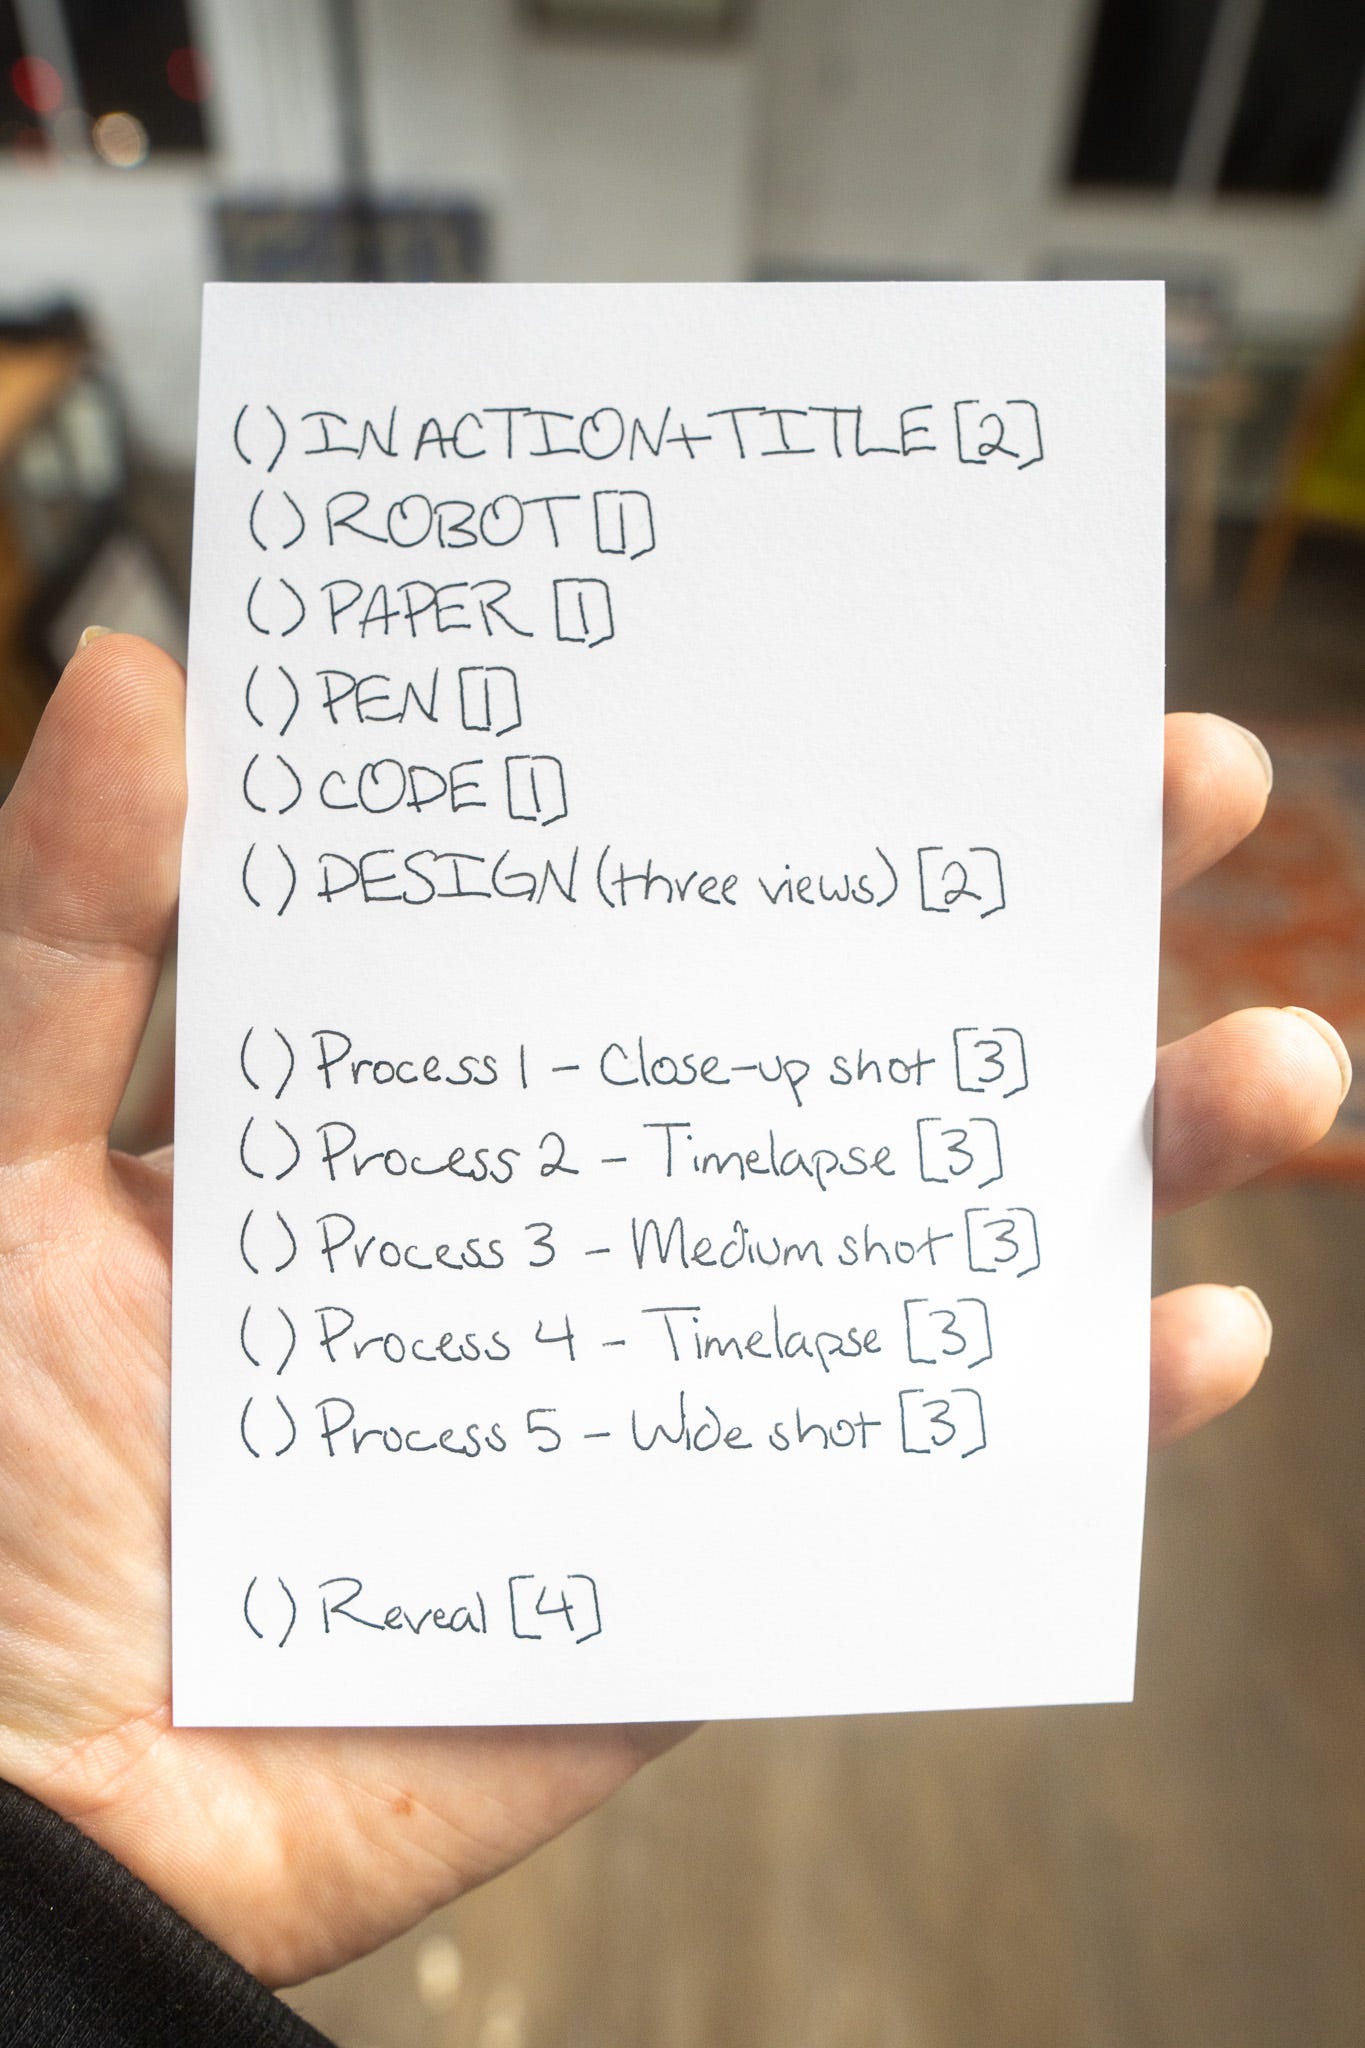 () IN ACTION+TITLE [2]
() ROBOT [1]
() PAPER [1]
() PEN [1]
() CODE [1]
() DESIGN (three views) [2]
() Process 1 - Close-up shot [3]
() Process 2 - Timelapse [3]
() Process 3 - Medium shot [3]
() Process 4 - Timelapse [3]
() Process 5 - Wide shot [3]
() Reveal [4]